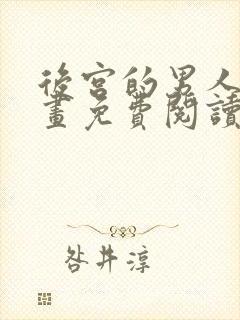 後宮的男人
畫免費閱讀
咎井淳